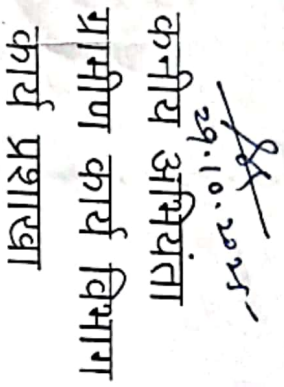 29.10.2025
कनीय अभियंता
ग्रामीण कार्य विभाग
कार्य प्रशाखा